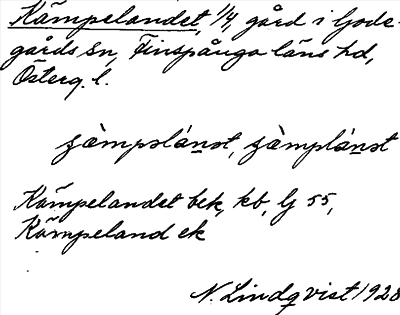 Kämpelandet, 1/4 gård i Gode-
gårds sn, Finspånga läns hd,
Österg. l.
Kämpelandet bek, kb, lj 55,
Kämpeland ek
N. Lindqvist 1928